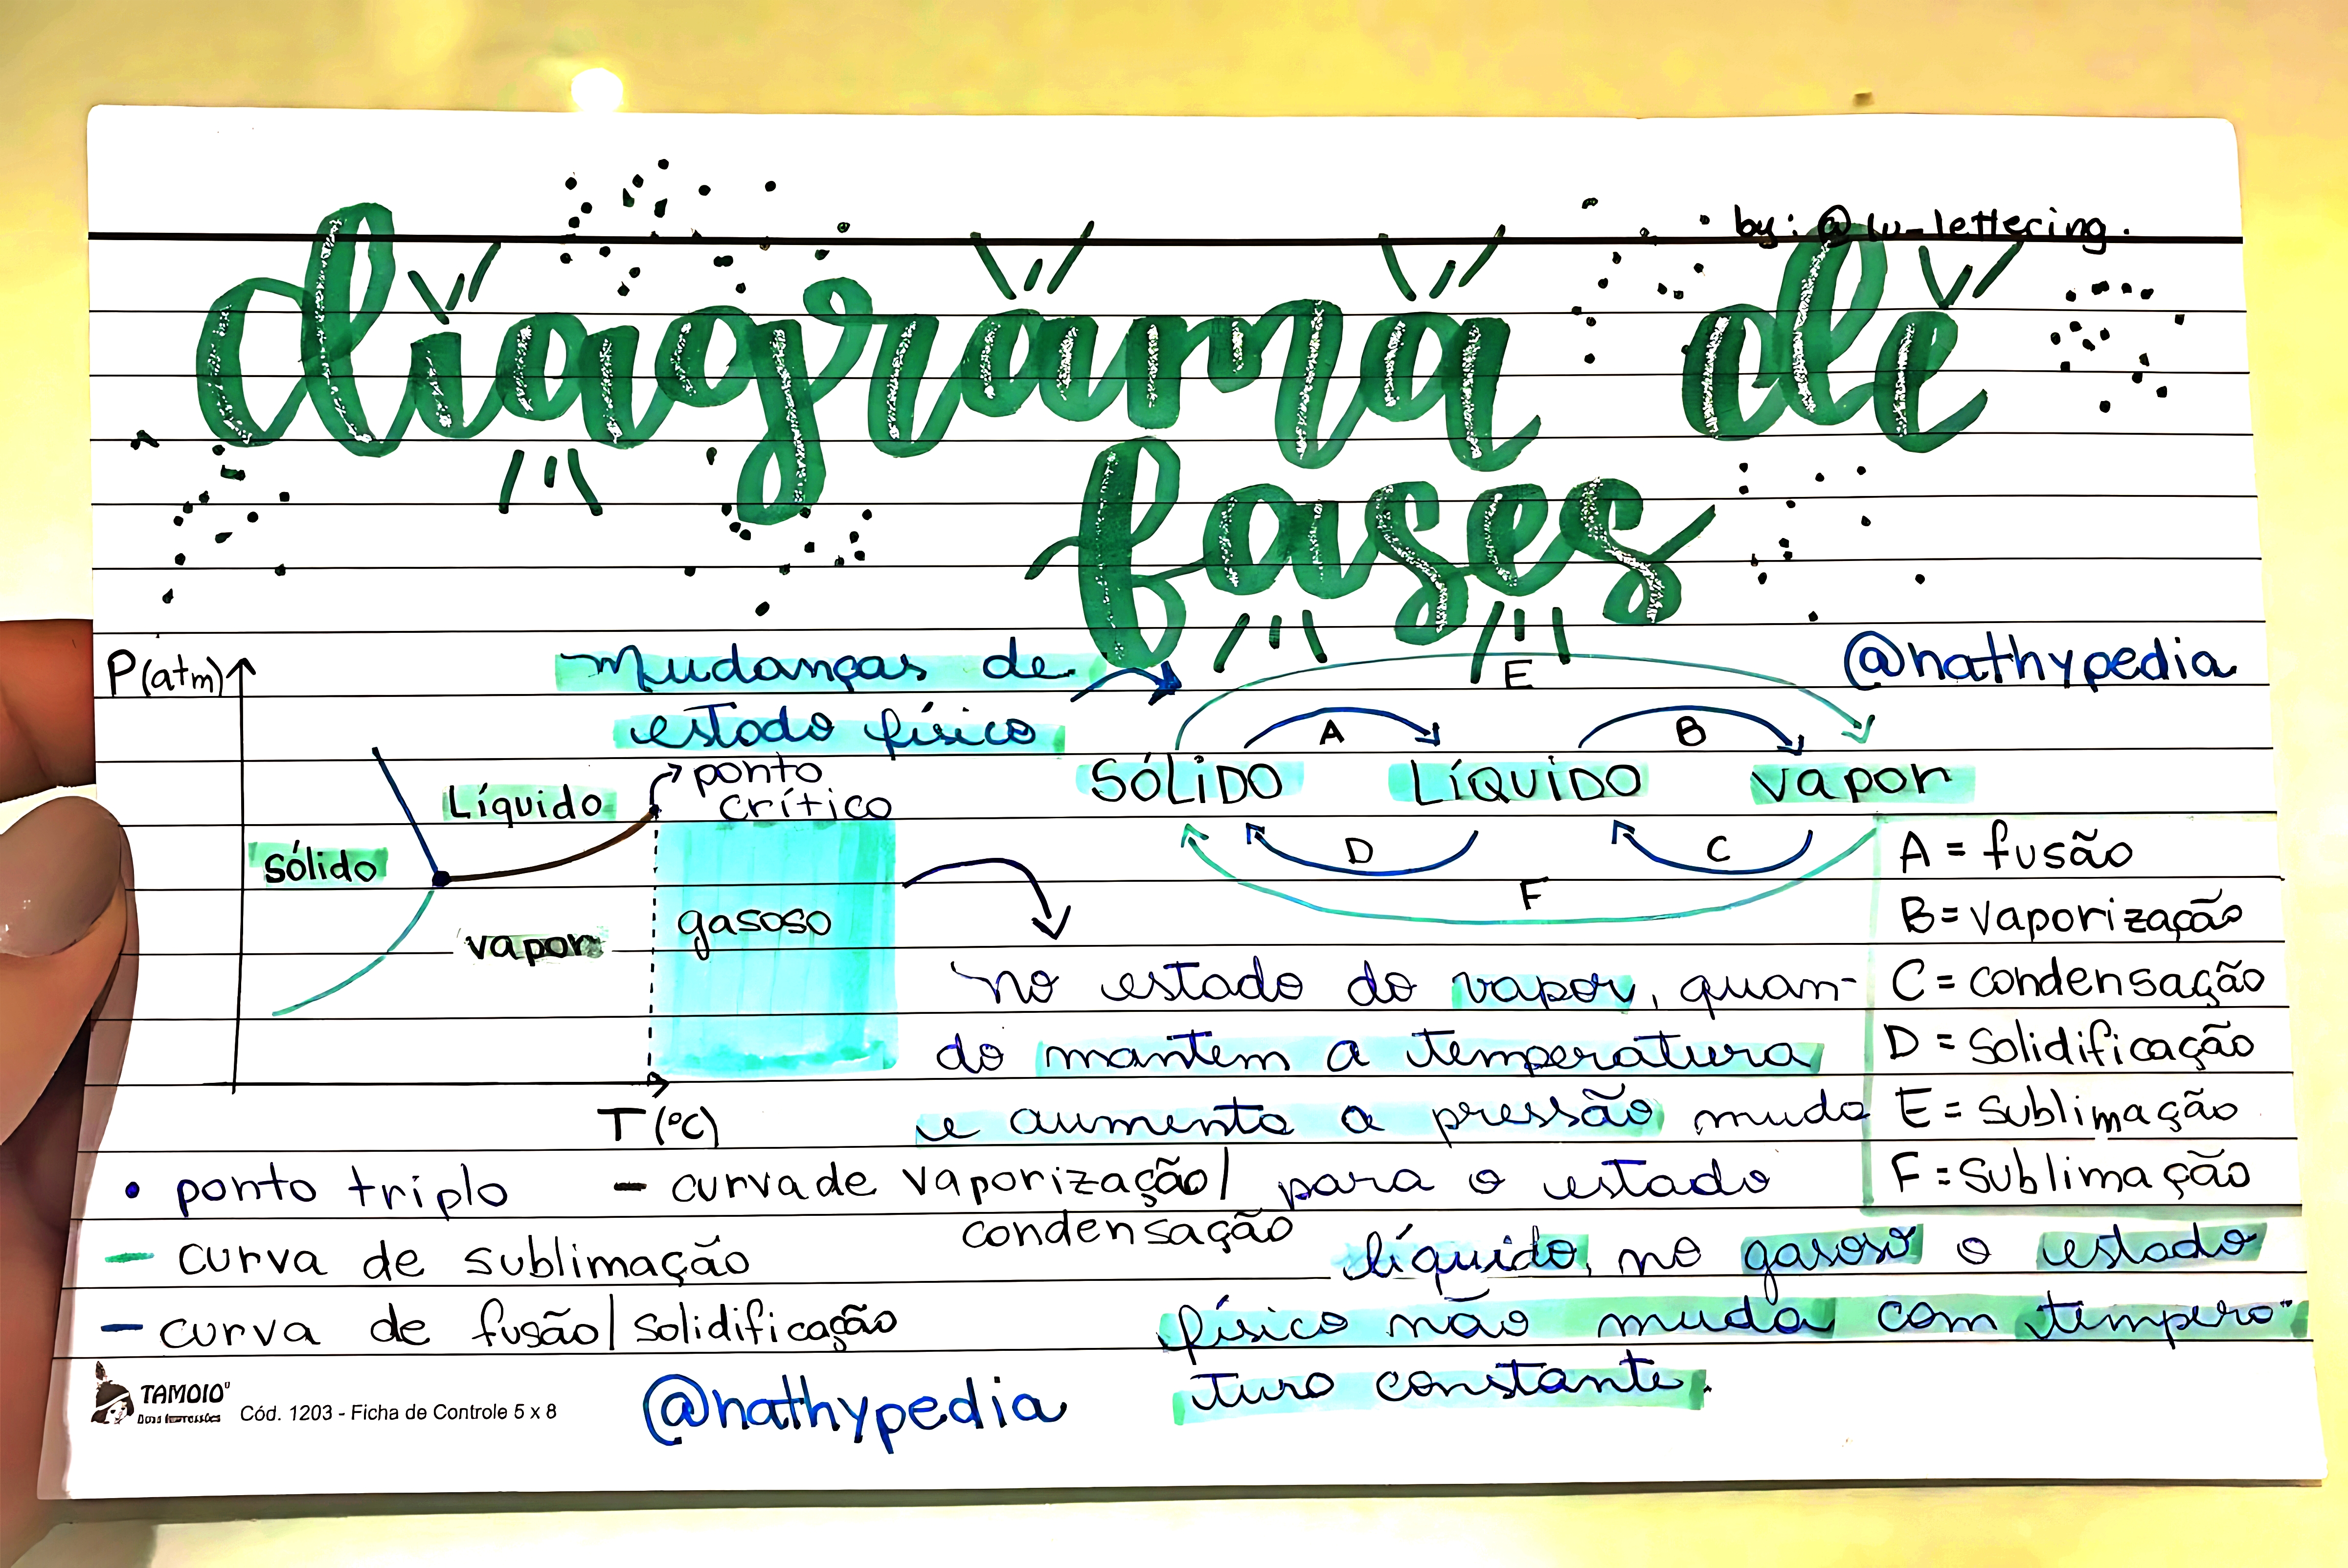 by: @lu_lettering.
diagrama de
fases
P(atm)
mudanças de
estado físico
@nathypedia
E
A
B
SÓLIDO LÍQUIDO vapor
D
C
F
ponto
crítico
Líquido
sólido
vapor
gasoso
T (°C)
A = fusão
B = vaporização
C = condensação
D = solidificação
E = sublimação
F = sublimação
no estado do vapor, quan-
do mantem a temperatura
e aumenta a pressão muda
para o estado
líquido, no gasoso o estado
físico não muda com tempera-
tura constante.
• ponto triplo
- curva de vaporização/
condensação
- curva de sublimação
- curva de fusão/solidificação
TAMOIO
Cód. 1203 - Ficha de Controle 5 x 8
@nathypedia